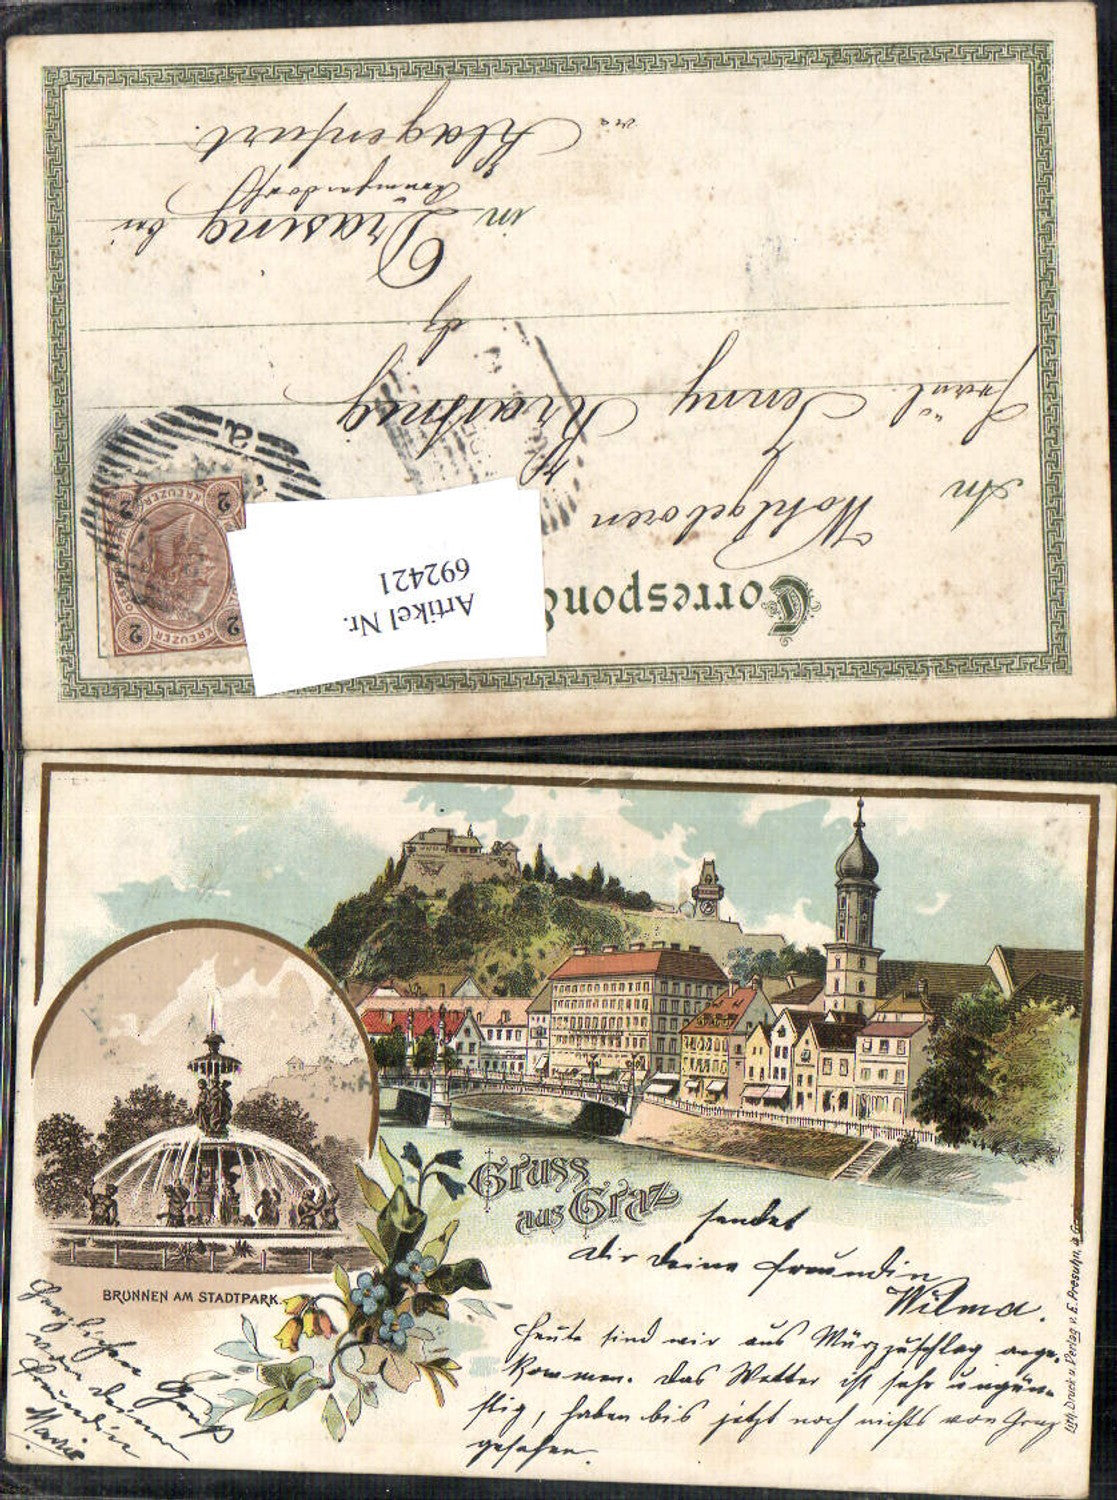 Correspond
An
Wohlgeboren
Fräul. Jenny
dz
in Drasing bei
via Klagenfurt.
2 KREUZER 2
2 KREUZER 2
Artikel Nr.
692421
Gruss
aus Graz
BRUNNEN AM STADTPARK.
sendet
dir deine Freundin
Wilma.
Heute sind wir aus Mürzzuschlag ange-
kommen. Das Wetter ist sehr ungün-
stig, haben bis jetzt noch nichts von Graz
gesehen.
Herzlichen Gruß
von deiner
Freundin
Marie
Lith. Druck u. Verlag v. E. Presuhn,